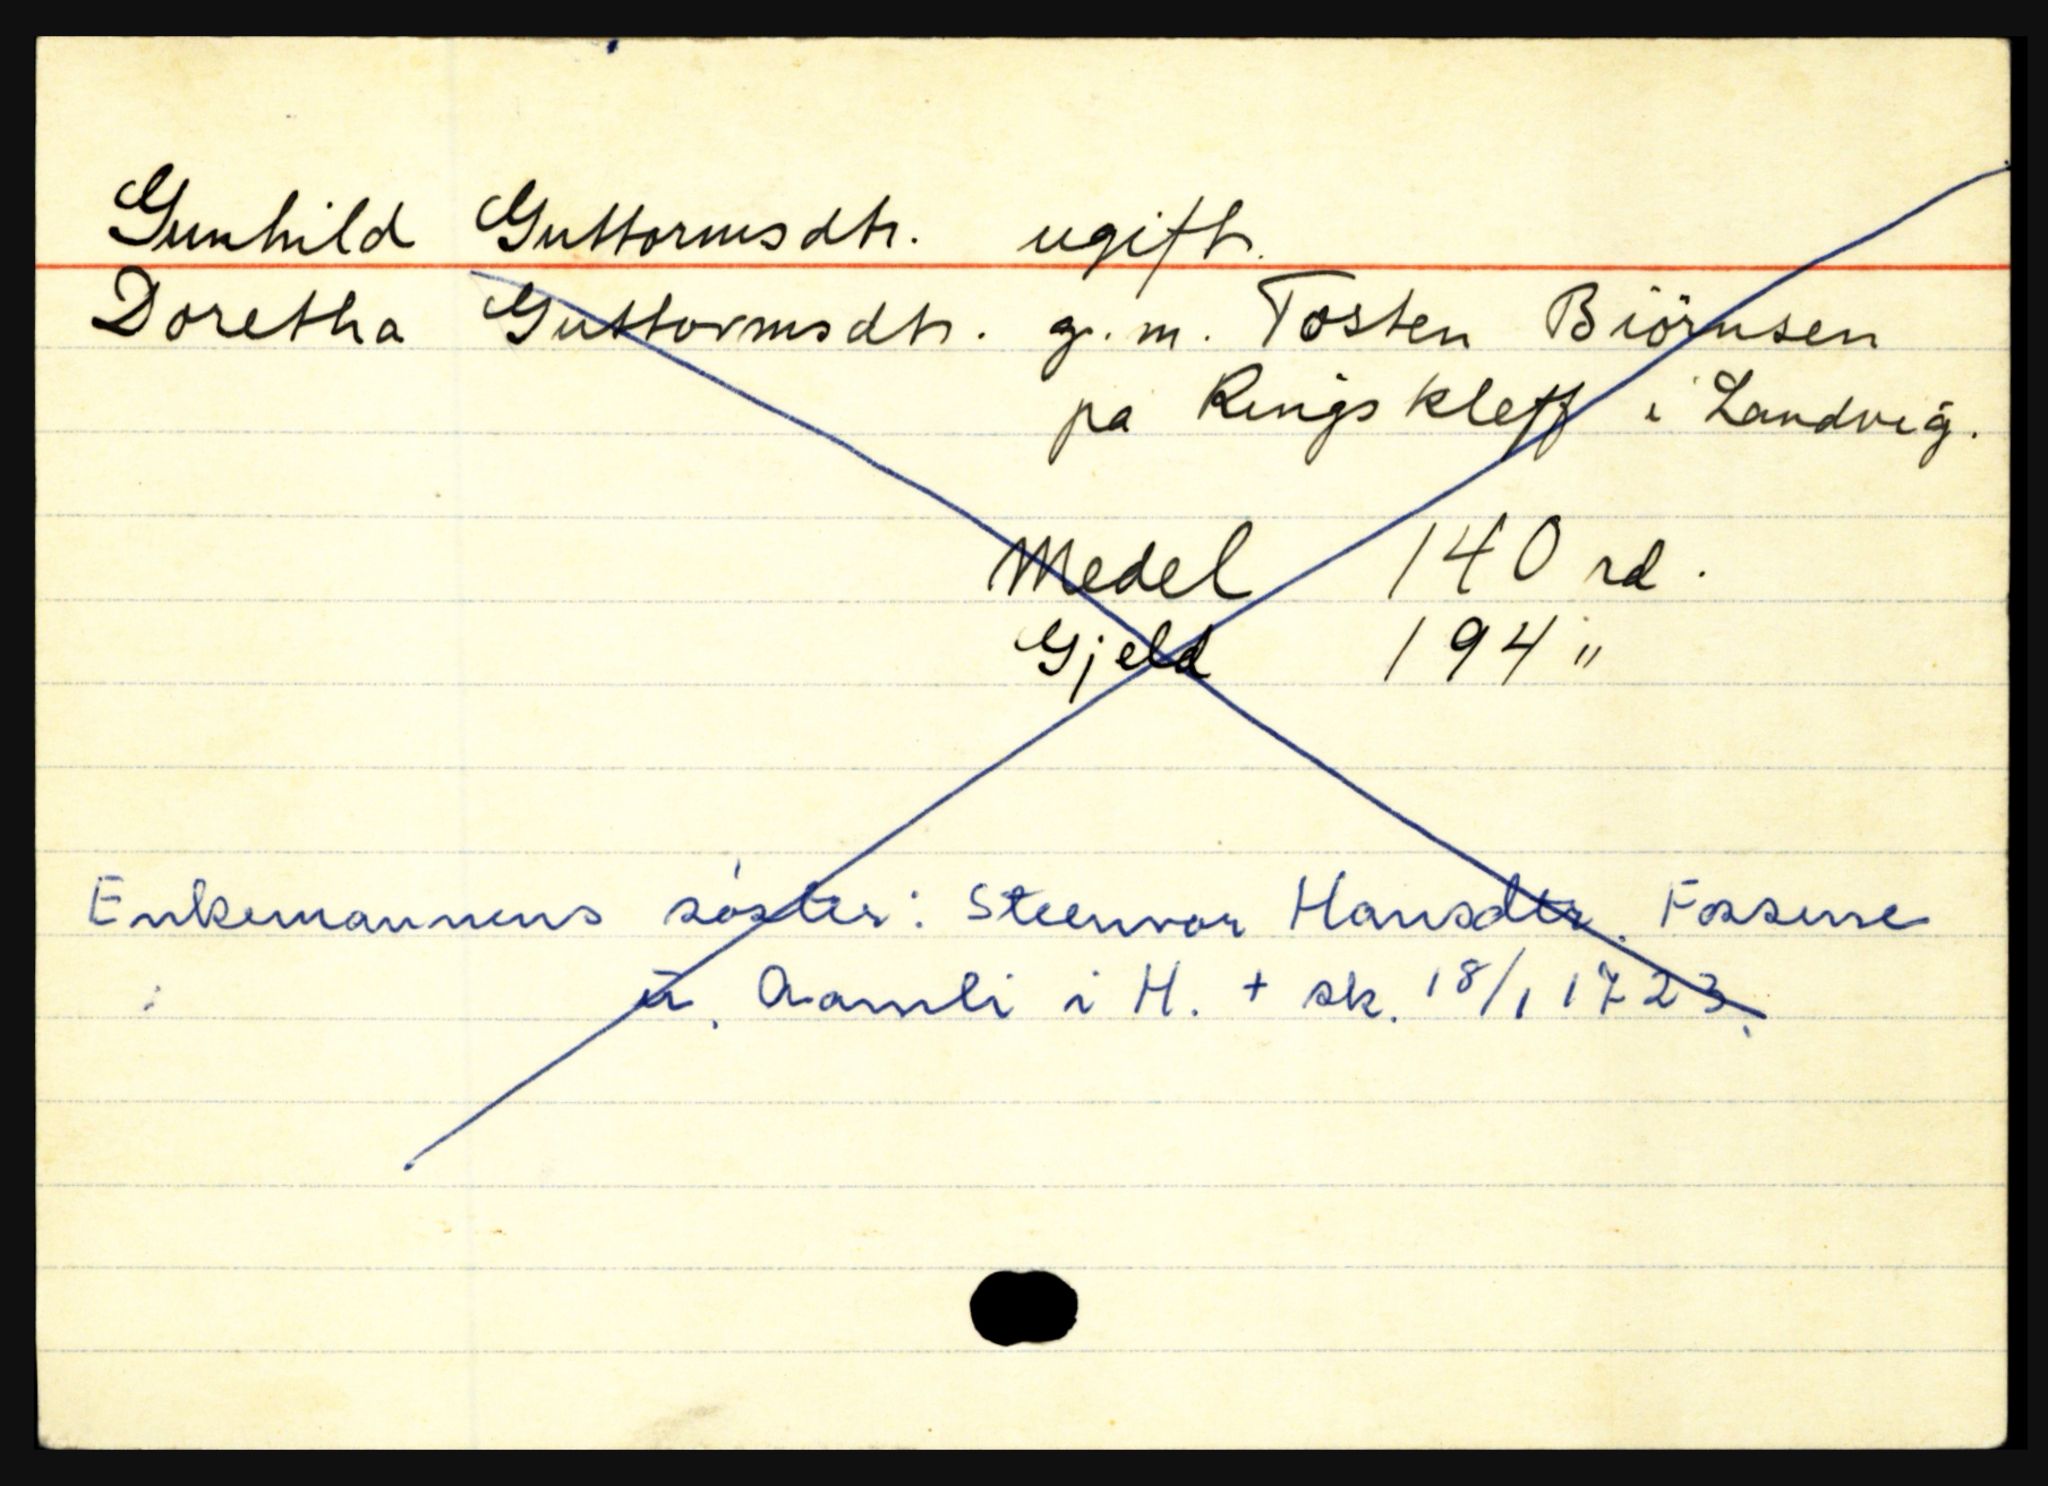 Gunhild Guttormsdtr. ugift.
Doretha Guttormsdtr. g.m. Tosten Biörnsen
på Ringskleff i Landvig.
Medel 140 rd.
Gjeld 194 "
Enkemannens söster: Steenvor Hansdtr. Fossene
u. Aamli i H. + sk. 18/1 1723.